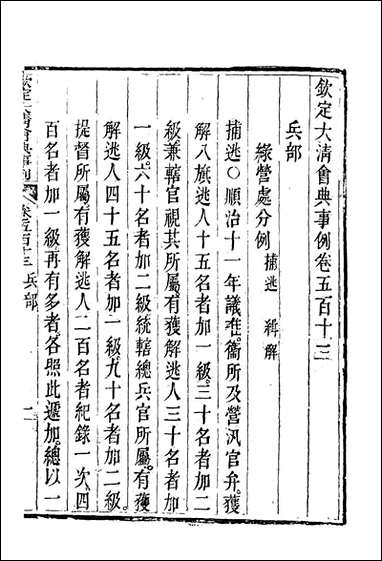 欽定大清會典事例卷五百十三
兵部
綠營處分例 捕逃 緝解
捕逃○順治十一年議准。衞所及營汛官弁。獲
解八旗逃人十五名者加一級。三十名者加二
級兼轄官視其所屬。有獲解逃人三十名者加
一級。六十名者加二級統轄總兵官所屬。有獲
解逃人四十五名者加一級。九十名者加二級。
提督所屬。有獲解逃人二百名者紀錄一次。四
百名者加一級再有多者。各照此遞加。總以一
欽定大清會典事例 卷五百十三 兵部 一